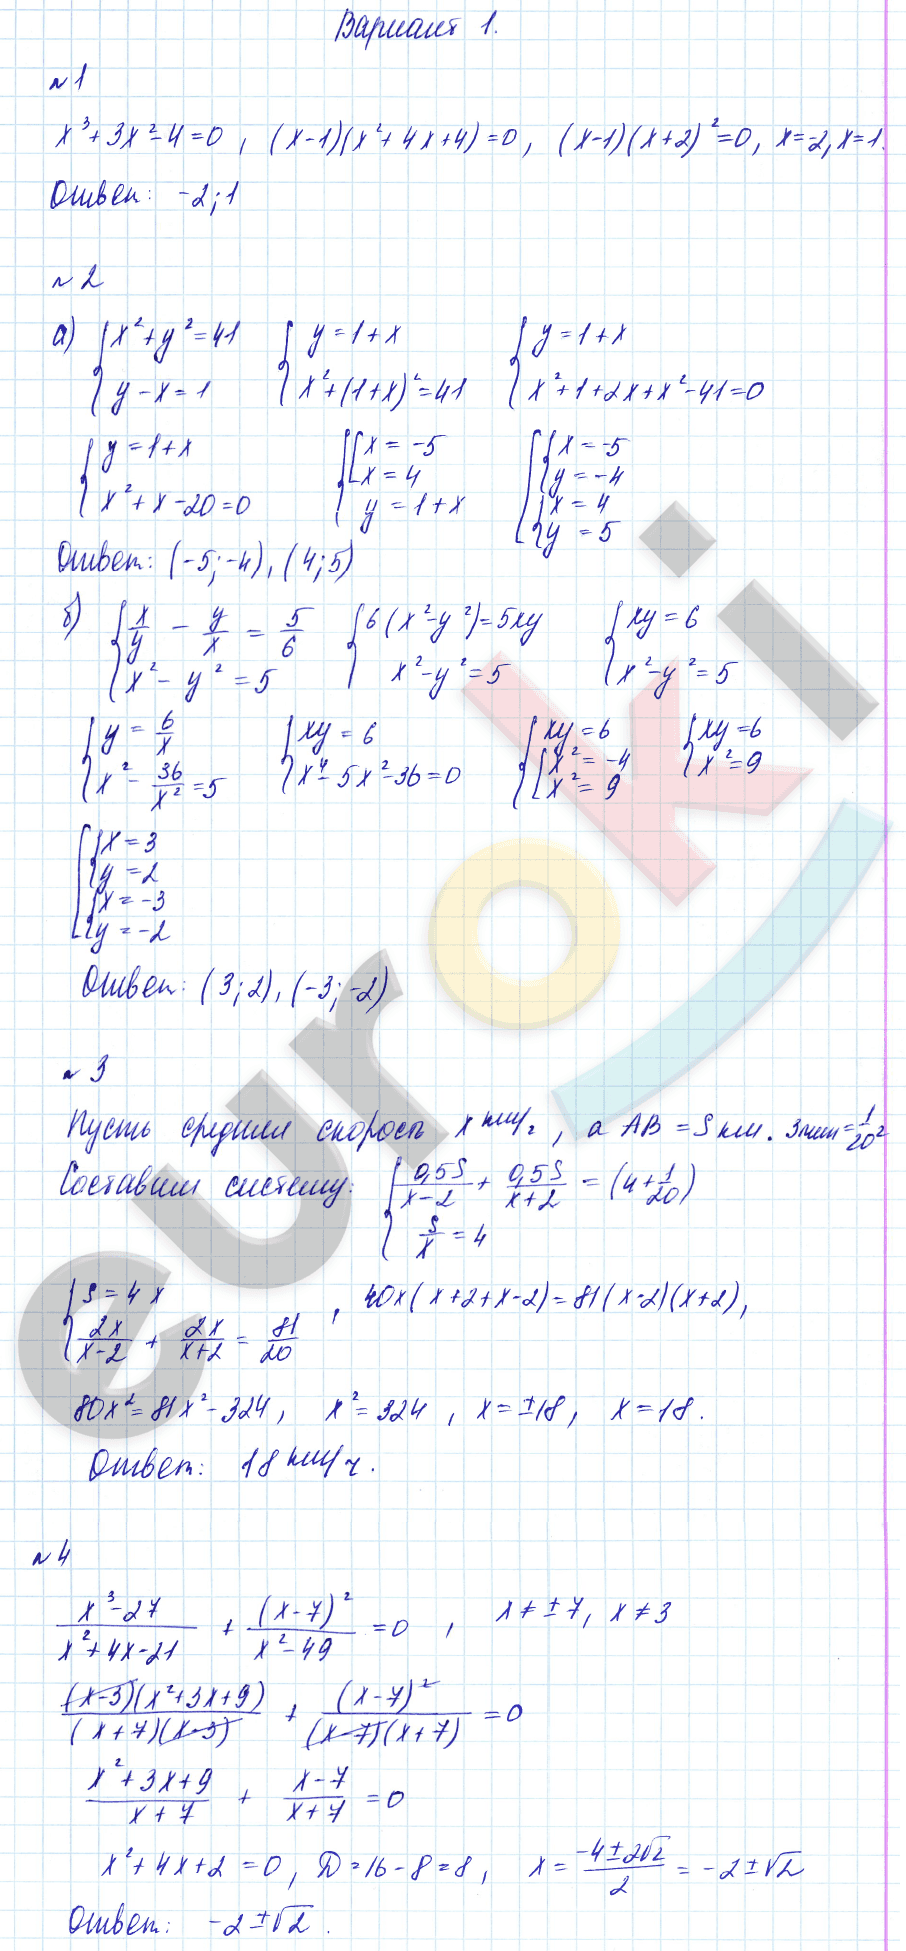 Вариант 1.
№1
x³+3x²-4=0, (x-1)(x²+4x+4)=0, (x-1)(x+2)²=0, x=-2, x=1.
Ответ: -2; 1
№2
а) {x²+y²=41 {y=1+x {y=1+x
y-x=1 x²+(1+x)²=41 x²+1+2x+x²-41=0
{y=1+x {[x=-5 [{x=-5
x²+x-20=0 x=4 y=-4
y=1+x {x=4
y=5
Ответ: (-5;-4), (4;5)
б) {x/y - y/x = 5/6 {6(x²-y²)=5xy {xy=6
x²-y²=5 x²-y²=5 x²-y²=5
{y=6/x {xy=6 {xy=6 {xy=6
x²-36/x²=5 x⁴-5x²-36=0 [x²=-4 x²=9
x²=9
[{x=3
y=2
{x=-3
y=-2
Ответ: (3;2), (-3;-2)
№3
Пусть средняя скорость x км/ч, а AB=S км. 3мин=1/20ч
Составим систему: {0,5S/(x-2) + 0,5S/(x+2) = (4+1/20)
S/x=4
{S=4x
2x/(x-2) + 2x/(x+2) = 81/20 , 40x(x+2+x-2)=81(x-2)(x+2),
80x²=81x²-324, x²=324, x=±18, x=18.
Ответ: 18 км/ч.
№4
(x³-27)/(x²+4x-21) + (x-7)²/(x²-49) =0, x≠±7, x≠3
(x-3)(x²+3x+9)/((x+7)(x-3)) + (x-7)²/((x-7)(x+7)) =0
(x²+3x+9)/(x+7) + (x-7)/(x+7) =0
x²+4x+2=0, D=16-8=8, x=(-4±2√2)/2=-2±√2
Ответ: -2±√2.
euroki